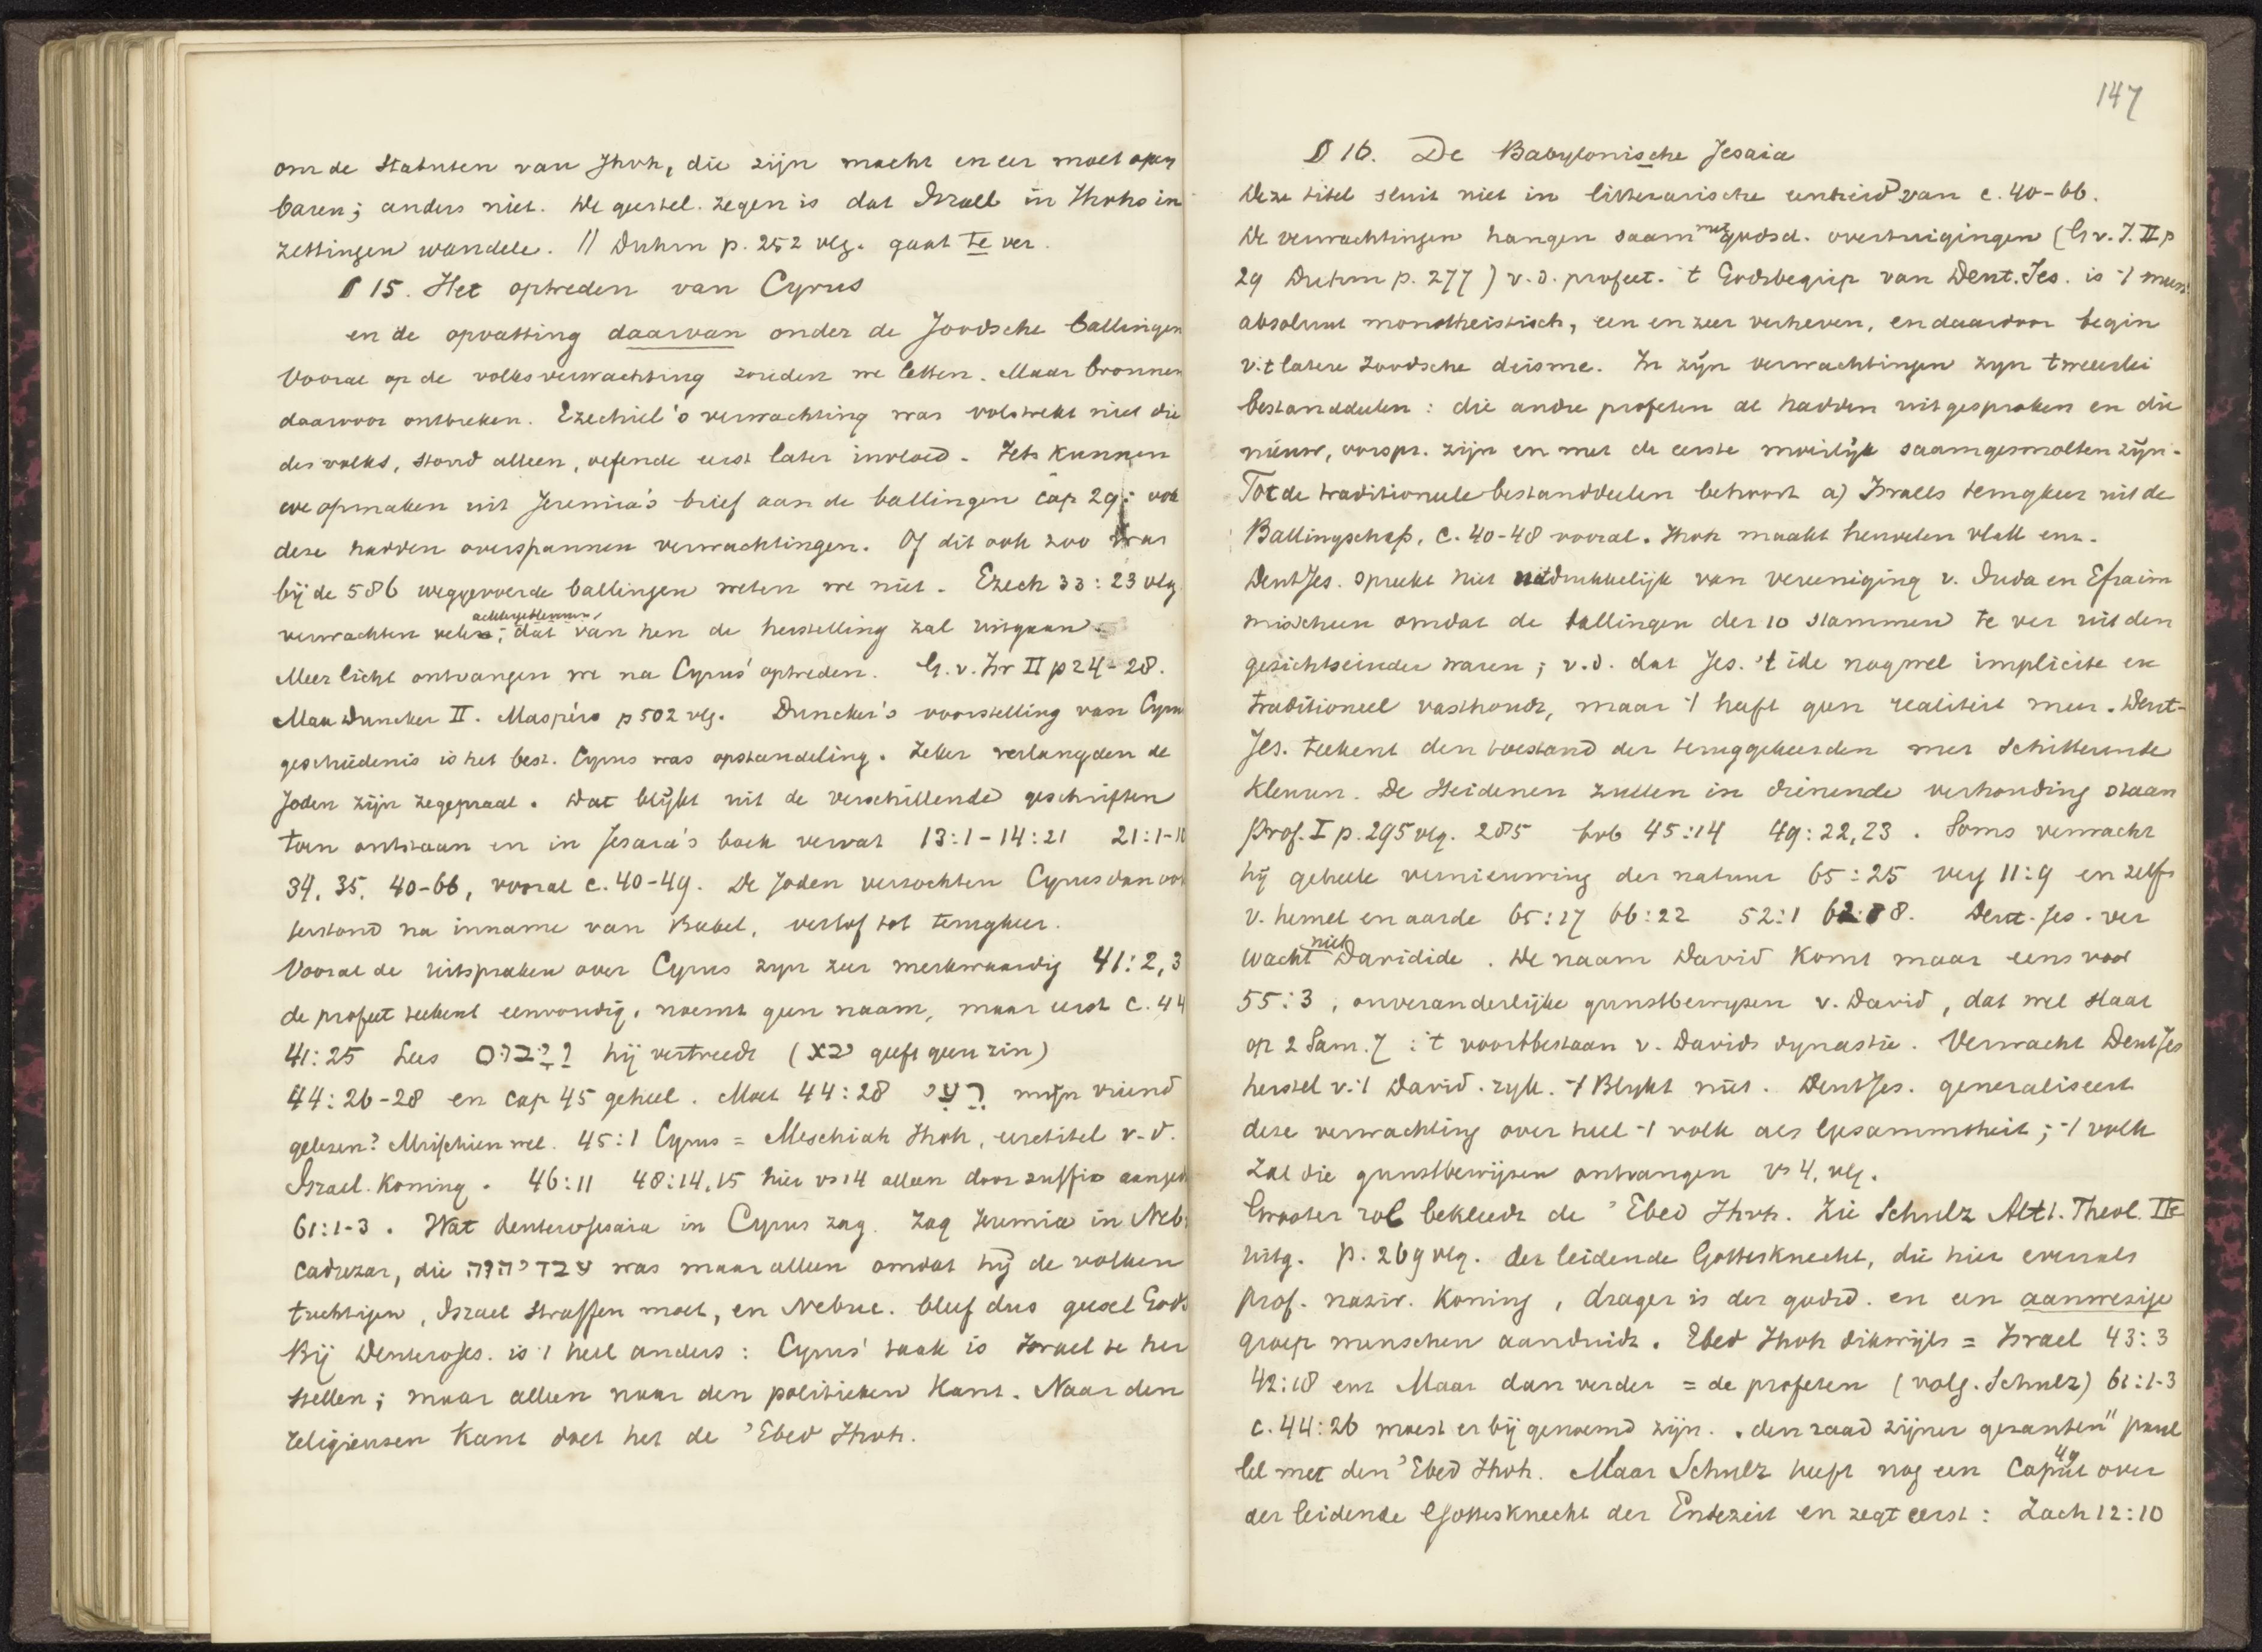 om de Statuten van Jhvh, die zijn macht en eer moet open
baren; anders niet. De geestel. zegen is dat Israel in Jhvhs in
zettingen wandele. // Duhm p. 252 vlg. gaat te ver.
§ 15. Het optreden van Cyrus
en de opvatting daarvan onder de Joodsche ballingen
Vooral op de volksverwachting zouden we letten. Maar bronnen
daarvoor ontbreken. Ezechiel's verwachting was volstrekt niet die
des volks, stond alleen, oefende eerst later invloed. Iets kunnen
we opmaken uit Jeremia's brief aan de ballingen cap 29: ook
deze hadden overspannen verwachtingen. Of dit ook zoo was
bij de 586 weggevoerde ballingen weten we niet. Ezech 33:23 vlg
achtergeblevenen,
verwachten velen; dat van hen de herstelling zal uitgaan.
Meer licht ontvangen we na Cyrus' optreden. G. v. Isr II p 24-28.
Max Duncker II. Maspéro p 502 vlg. Duncker's voorstelling van Cyrus
geschiedenis is het best. Cyrus was opstandeling. Zeker verlangden de
Joden zijn zegepraal. Dat blijkt uit de verschillende geschriften
toen ontstaan en in Jesaia's boek vervat 13:1-14:21 21:1-10
34, 35, 40-66, vooral c. 40-49. De Joden verzochten Cyrus dan ook
terstond na inname van Babel, verlof tot terugkeer.
Vooral de uitspraken over Cyrus zyn zeer merkwaardig 41:2,3
de profeet teekent eenvoudig, noemt geen naam, maar eerst c. 44
41:25 Lees יבוס hij vertreedt (יבא geeft geen zin)
44:26-28 en cap 45 geheel. Moet 44:28 רעי mijn vriend
gelezen? Misschien wel. 45:1 Cyrus = Meschiah Jhvh, eeretitel v.d.
Israel. Koning. 46:11 48:14,15 hier vs 14 alleen door suffix aanged
61:1-3. Wat deuterojesaia in Cyrus zag. Zag Jeremia in Neb
cadrezar, die עבד יהוה was maar alleen omdat hij de volken
tuchtigen, Israel straffen moet, en Nebuc. bleef dus geesel Gods
Bij Deuterojes. is 't heel anders: Cyrus' taak is Israel te her
stellen; maar alleen naar den politieken kant. Naar den
religieusen kant doet het de 'Ebed Jhvh.
147
§ 16. De Babylonische Jesaia
Deze titel sluit niet in litterarische eenheid van c. 40-66.
De verwachtingen hangen saam met godsd. overtuigingen (G. v. I. II p
29 Duhm p. 277) v.d. profeet. 't Godsbegrip van Deut. Jes. is 't meest
absoluut monotheistisch, een en zeer verheven, en daardoor begin
v. 't latere Joodsche deisme. In zijn verwachtingen zyn tweeerlei
bestanddeelen: die andre profeten al hadden uitgesproken en die
nieuw, oorspr. zijn en met de eerste moeilijk saamgesmolten zijn.
Tot de traditioneele bestanddeelen behoort a) Israels terugkeer uit de
Ballingschap, C. 40-48 vooral. Jhvh maakt heuvelen vlak enz.
DeutJes. spreekt niet uitdrukkelijk van vereeniging v. Juda en Efraim
misschien omdat de ballingen der 10 stammen te ver uit den
gezichtseinder waren; v.d. dat Jes. 't idé nog wel implicite en
traditioneel vasthoudt, maar 't heeft geen realiteit meer. Deut-
Jes. teekent den toestand der teruggekeerden met schitterende
kleuren. De Heidenen zullen in dienende verhouding staan
Prof. I p. 295 vlg. 285 bvb 45:14 49:22,23. Soms verwacht
hij geheele vernieuwing der natuur 65:25 verg 11:9 en zelfs
v. hemel en aarde 65:17 66:22 52:1 62:8. Deut. Jes. ver
wacht niet Davidide. De naam David komt maar eens voor
55:3, onveranderlijke gunstbewyzen v. David, dat wel slaat
op 2 Sam. 7: 't voortbestaan v. Davids dynastie. Verwacht DeutJes
herstel v. 't David. ryk. 't Blykt niet. DeutJes. generaliseert
deze verwachting over heel 't volk als Gesammtheit; 't volk
zal die gunstbewijzen ontvangen vs 4, vlg.
Grooter rol bekleedt de 'Ebed Jhvh. Zie Schulz Altt. Theol. IIe
uitg. p. 269 vlg. der leidende Gottesknecht, die hier evenals
Prof. nazir. Koning, drager is der godsd. en een aanwezige
groep menschen aanduidt. Ebed Jhvh dikwijls = Israel 43:3
42:18 enz Maar dan verder = de profeten (volg. Schulz) 61:1-3
c. 44:26 moest er bij genoemd zijn. „den raad zijner gezanten" paral
lel met den 'Ebed Jhvh. Maar Schulz heeft nog een Caput 49 over
der leidende Gottesknecht der Endezeit en zegt eerst: Zach 12:10